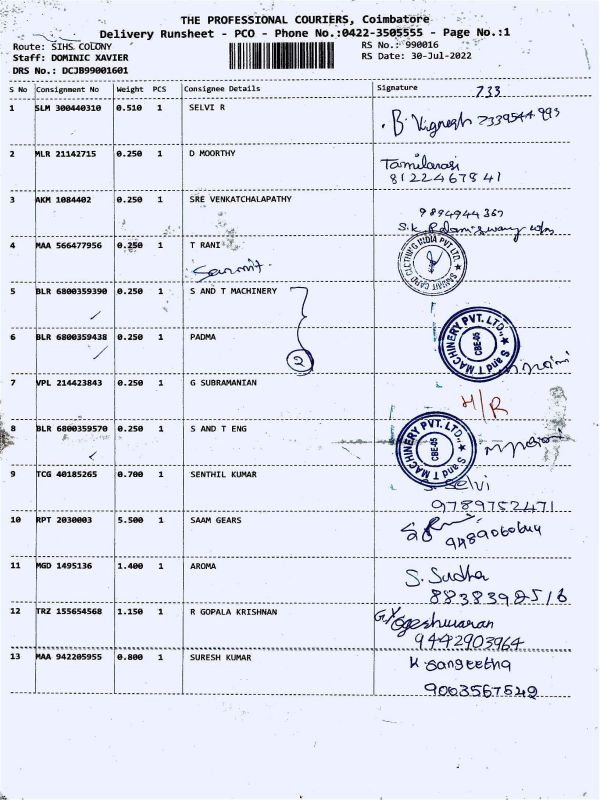 THE PROFESSIONAL COURIERS, Coimbatore
Delivery Runsheet - PCO - Phone No.:0422-3505555 - Page No.:1
Route: SIHS COLONY
Staff: DOMINIC XAVIER
DRS No.: DCJB99001601
RS No.: 990016
RS Date: 30-Jul-2022
S No Consignment No Weight PCS Consignee Details Signature
733
1 SLM 300440310 0.510 1 SELVI R
B. Vignesh 7339544993
2 MLR 21142715 0.250 1 D MOORTHY
Tamilarasi
8122467841
3 AKM 1084402 0.250 1 SRE VENKATCHALAPATHY
9894944367
S.K
4 MAA 566477956 0.250 1 T RANI
CLOTHING INDIA PVT LTD.
5 BLR 6800359390 0.250 1 S AND T MACHINERY
6 BLR 6800359438 0.250 1 PADMA
2
S and T MACHINERY PVT. LTD.,
CBE-05
7 VPL 214423843 0.250 1 G SUBRAMANIAN
H/R
8 BLR 6800359570 0.250 1 S AND T ENG
S and T MACHINERY PVT. LTD.,
CBE-05
9 TCG 40185265 0.700 1 SENTHIL KUMAR
S. Selvi
9789752471
10 RPT 2030003 5.500 1 SAAM GEARS
11 MGD 1495136 1.400 1 AROMA
S. Sudha
8838398516
12 TRZ 155654568 1.150 1 R GOPALA KRISHNAN
G. Yogeshwaran
9442903964
13 MAA 942205955 0.800 1 SURESH KUMAR
K Sangeetha
9003567549